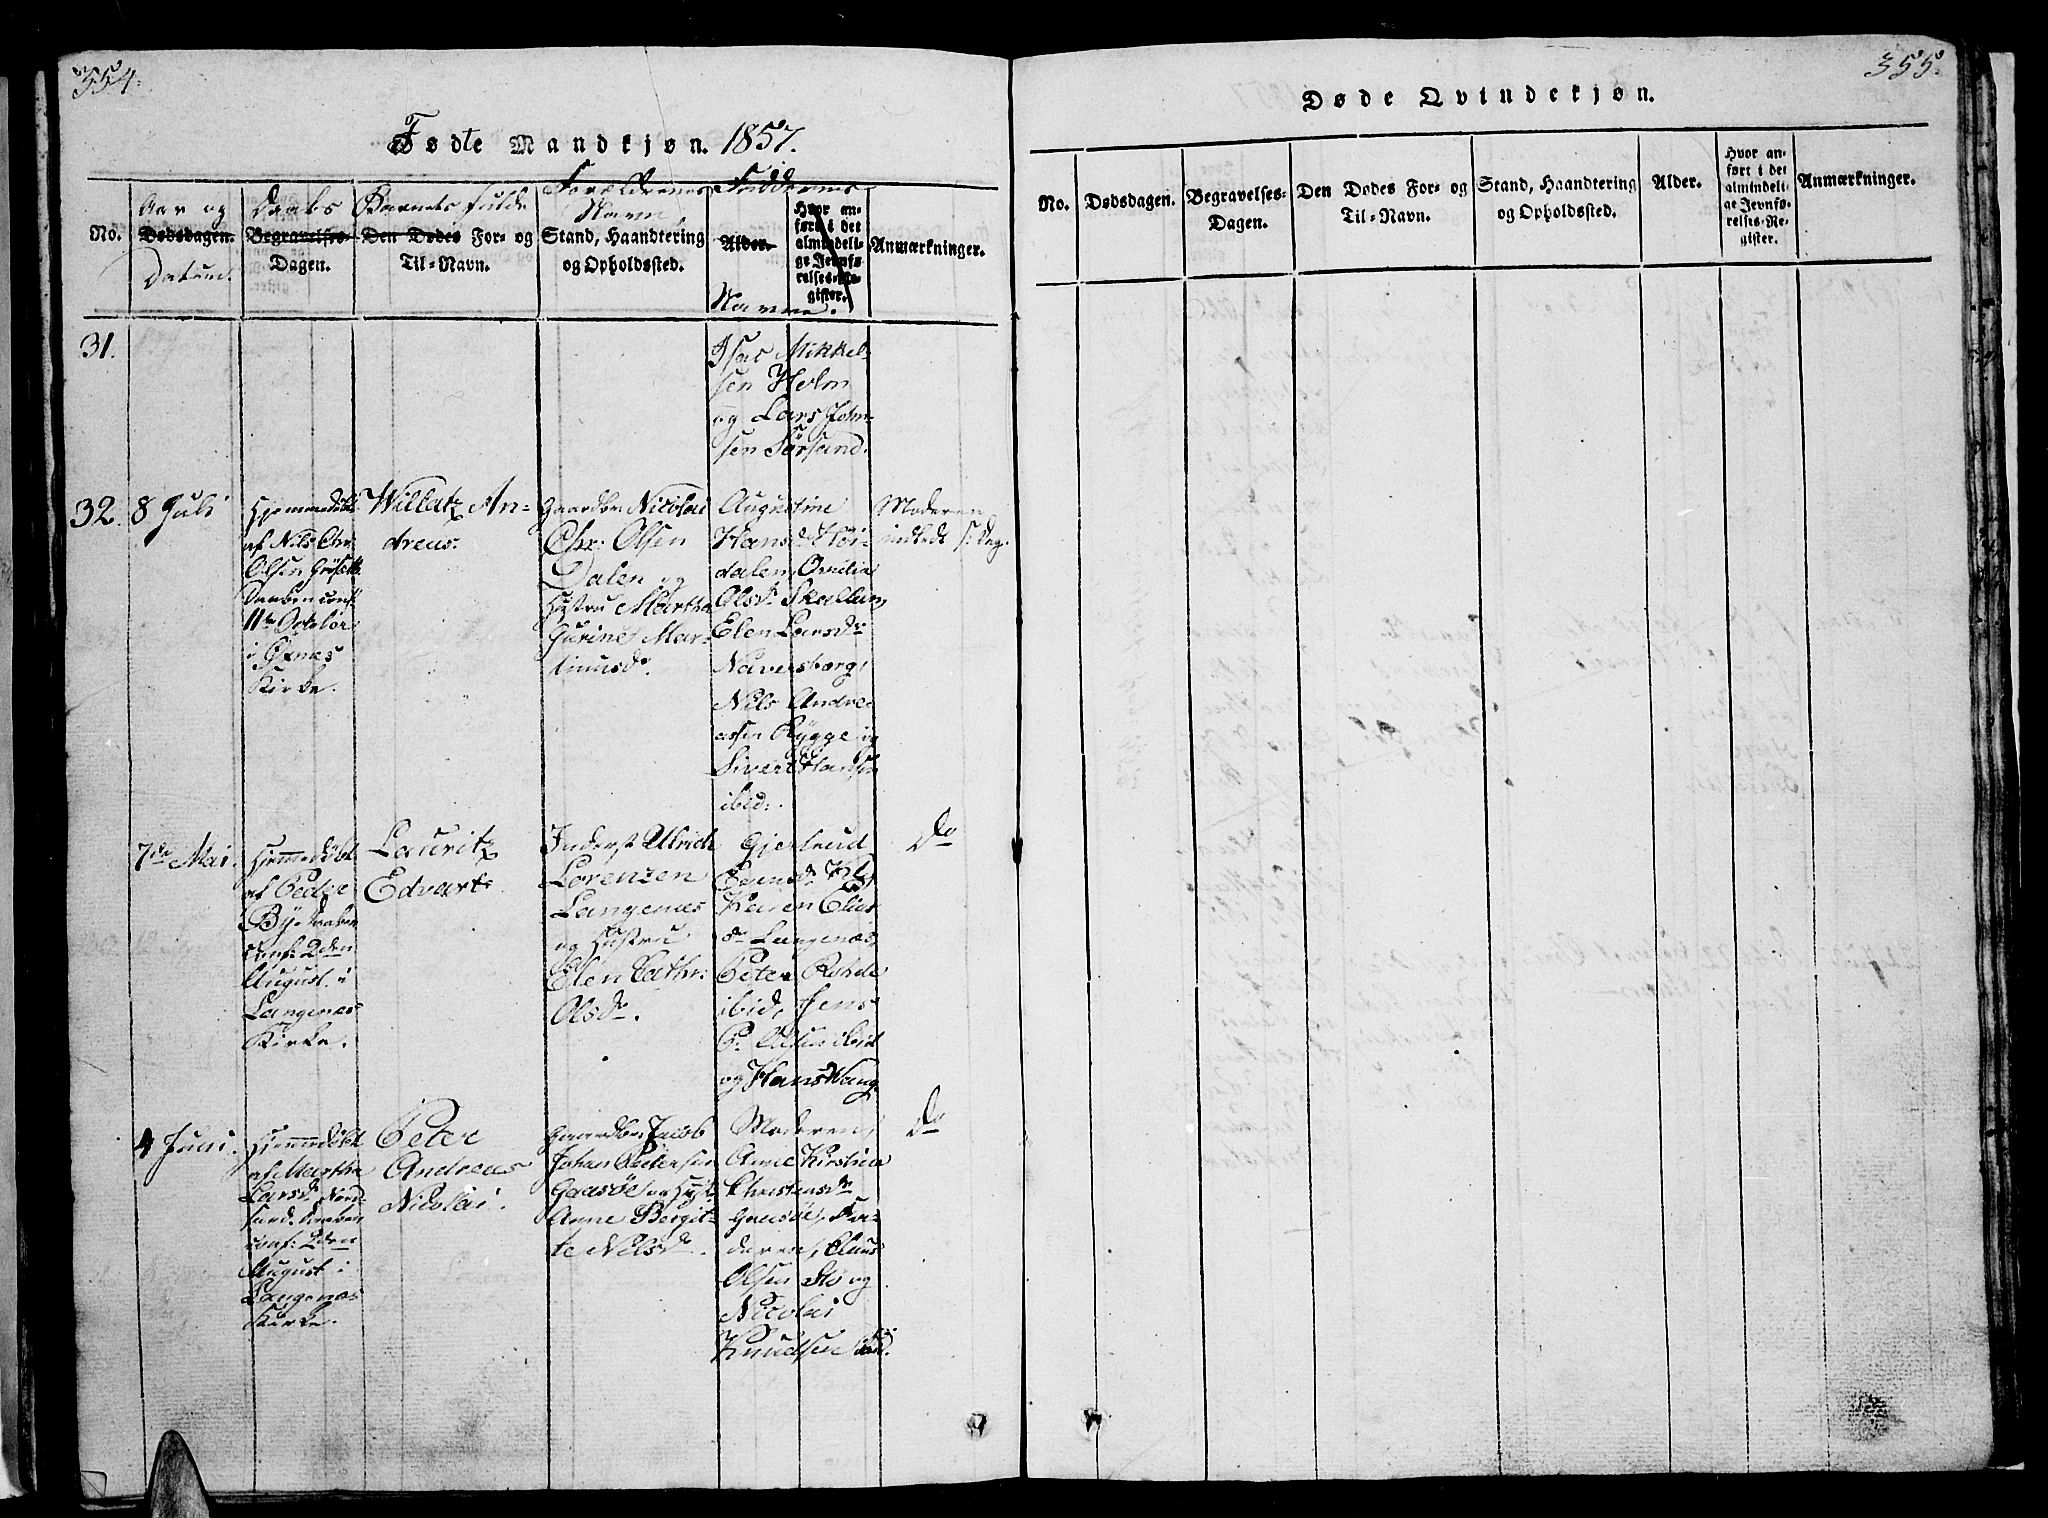 354.
Fødte Mandkjøn. 1857.
No.
Aar og
Dødsdagen.
Datum.
Daabs
Begravelses-
Dagen.
Barnets fulde
Den Dødes For- og
Til-Navn.
Forældrenes
Navn
Stand, Haandtering
og Opholdssted.
Faddernes
Alder.
Navne.
Hvor an-
ført i det
almindeli-
ge Jevnfø-
relses-Re-
gister.
Anmærkninger.
31.
Isac Mikkel-
sen Holm
og Lars John-
sen Sørsand.
32.
8 Juli
Hjemmedøbt
af Nils Chr.
Olsen
Daaben conf.
11te October
i Øxnes
Kirke.
Willatz An-
dreas.
Gaardbr. Nicolai
Chr. Olsen
Dalen og
Hustru Martha
Gurine Mar-
tinusdr.
Augustine
Hansdr. Høi-
dalen,
Olsdr. Skallum,
Elen Larsdr.
Naversberg,
Nils Andre-
assen Rygge og
Sivert Hansen
ibid.
Moderen
indledt s: Dag.
7de Mai.
Hjemmedøbt
af Peder
By. Daaben
conf: 2den
August i
Langenæs
Kirke.
Lauritz
Edvart.
Inderst Ulrich
Lorenzen
Langenæs
og Hustru
Elen Cathr.
Olsdr.
Gjertrud
Karen Elias-
dr Langenæs,
Peter Rohde
ibid, Jens
P. Olsen ibid
og Hans Vang.
Do
4 Juni.
Hjemmedøbt
af Martha
Larsdr. Nord-
sand. Daaben
conf: 2den
August i
Langenæs
Kirke.
Peter
Andreas
Nicolai.
Gaardbr. Jacob
Johan Pedersen
Gaasøe og Hust.
Anne Bergit-
te Nilsdr.
Moderen,
Anne Kirstine
Christensdr
Gaasøe, Fa-
deren, Claus
Olsen Stø og
Nicolai
Knudsen
Do
355.
Døde Qvindekjøn.
No.
Dødsdagen.
Begravelses-
Dagen.
Den Dødes For- og
Til-Navn.
Stand, Haandtering
og Opholdssted.
Alder.
Hvor an-
ført i det
almindeli-
ge Jevnfø-
relses-Re-
gister.
Anmærkninger.